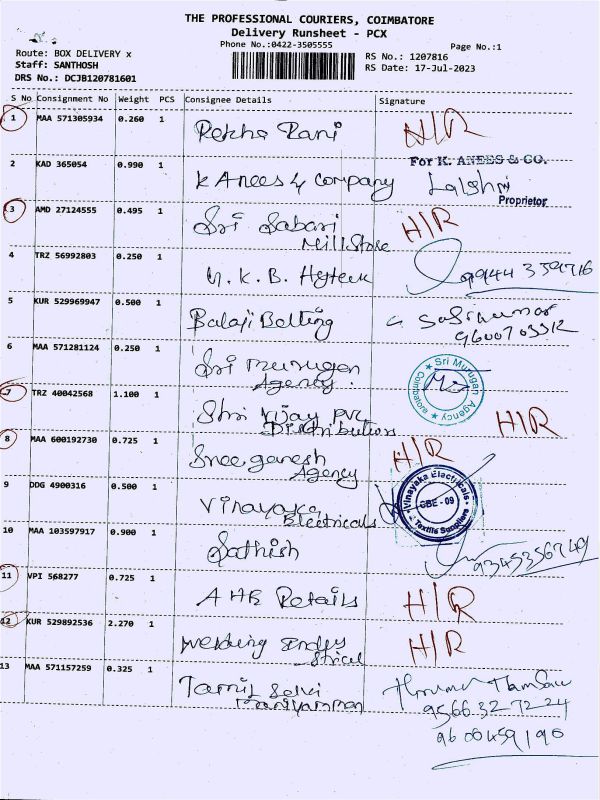 THE PROFESSIONAL COURIERS, COIMBATORE
Delivery Runsheet - PCX
Phone No.:0422-3505555
Page No.:1
Route: BOX DELIVERY x
Staff: SANTHOSH
DRS No.: DCJB120781601
RS No.: 1207816
RS Date: 17-Jul-2023
S No Consignment No Weight PCS Consignee Details Signature
1 MAA 571305934 0.260 1 Rekha Rani H/R
2 KAD 365054 0.990 1 K Anees & Company
For K. ANEES & CO.
Proprietor
3 AMD 27124555 0.495 1 Sri Sabari
Mill Store H/R
4 TRZ 56992803 0.250 1 K. B. 
5 KUR 529969947 0.500 1 Balaji Belting
G Sasikumar
6 MAA 571281124 0.250 1 Sri Murugan
Agency.
Sri Murugan Agency
Coimbatore
7 TRZ 40042568 1.100 1 Shri Vijay PVC
Distributors H/R
8 MAA 600192730 0.725 1 Sree ganesh
Agency H/R
9 DDG 4900316 0.500 1 Vinayaka
Electricals
Vinayaka Electricals
CBE - 09
Textile Suppliers
10 MAA 103597917 0.900 1 Sathish
11 VPI 568277 0.725 1 A HR Retails H/R
12 KUR 529892536 2.270 1 Welding H/R
13 MAA 571157259 0.325 1 Tamil Selvi
9566327224
9600459190